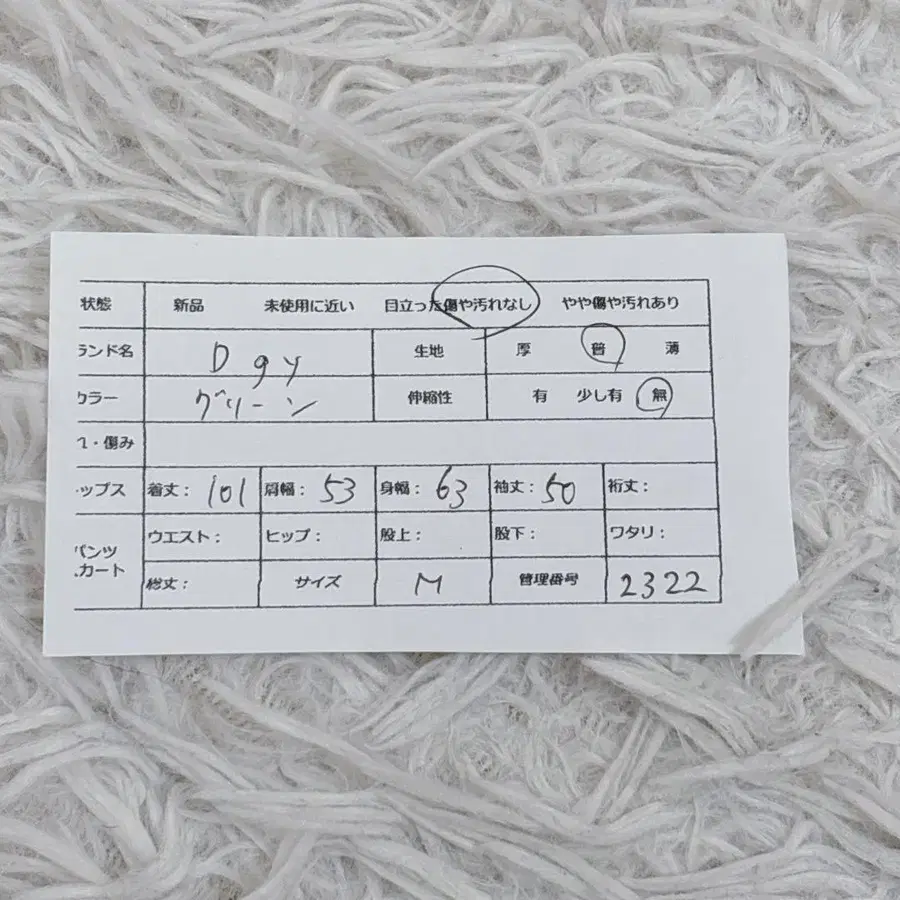 状態 新品 未使用に近い 目立った傷や汚れなし やや傷や汚れあり
ランド名 Dgy 生地 厚 普 薄
カラー グリーン 伸縮性 有 少し有 無
・傷み
ップス 着丈: 101 肩幅: 53 身幅: 63 袖丈: 50 裄丈:
パンツ ウエスト: ヒップ: 股上: 股下: ワタリ:
カート 総丈: サイズ M 管理番号 2322